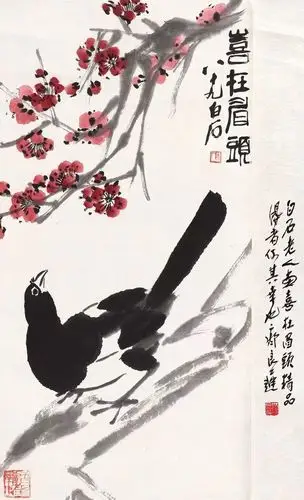 喜在眉頭
八十九白石
白石老人画喜在眉頭精品
得者何其幸也